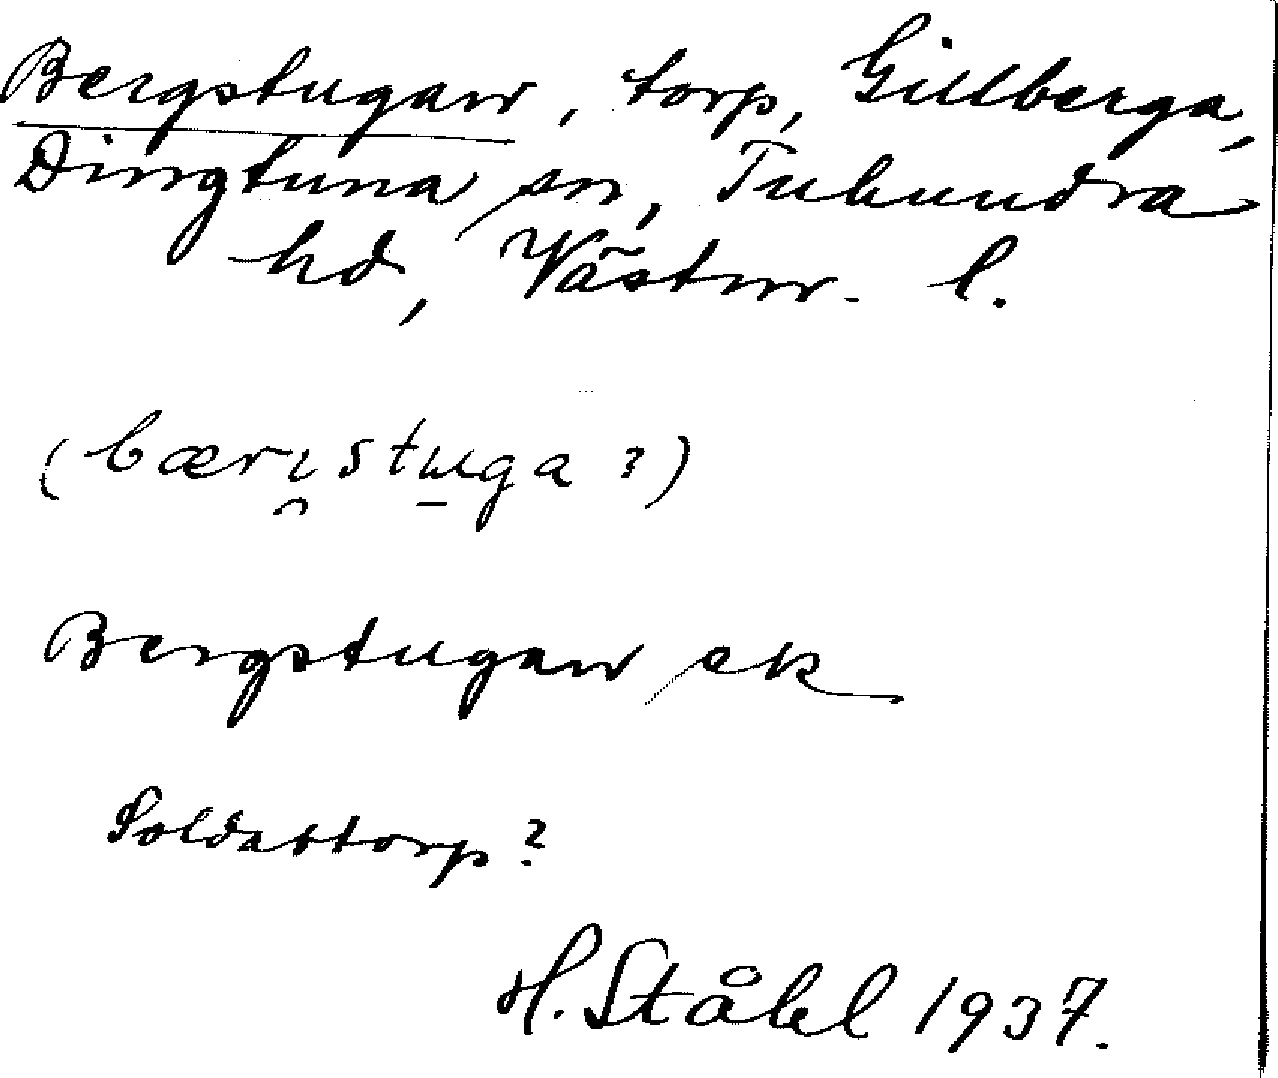 Bergstugan, torp, Gillberga,
Dingtuna sn, Tuhundra
hd, Västm. l.
(bærı̯stu̲ga?)
Bergstugan ek
Soldattorp?
H. Ståhl 1937.